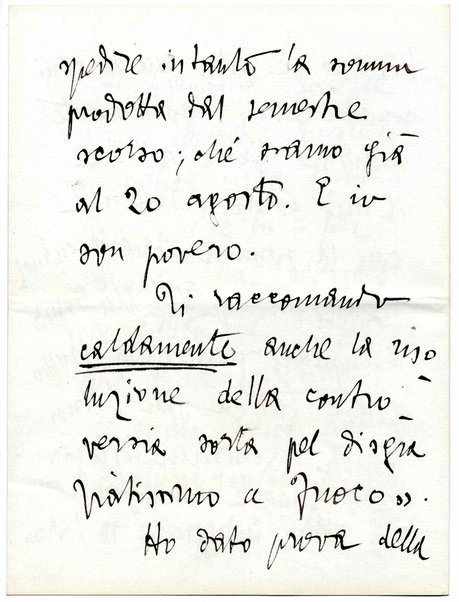 spedire intanto la somma
prodotta dal semestre
scorso; ché siamo già
al 20 agosto. E io
son povero.
Ti raccomando
caldamente anche la riso
luzione della contro
versia sorta pel disgra
ziatissimo « Fuoco ».
Ho dato prova della